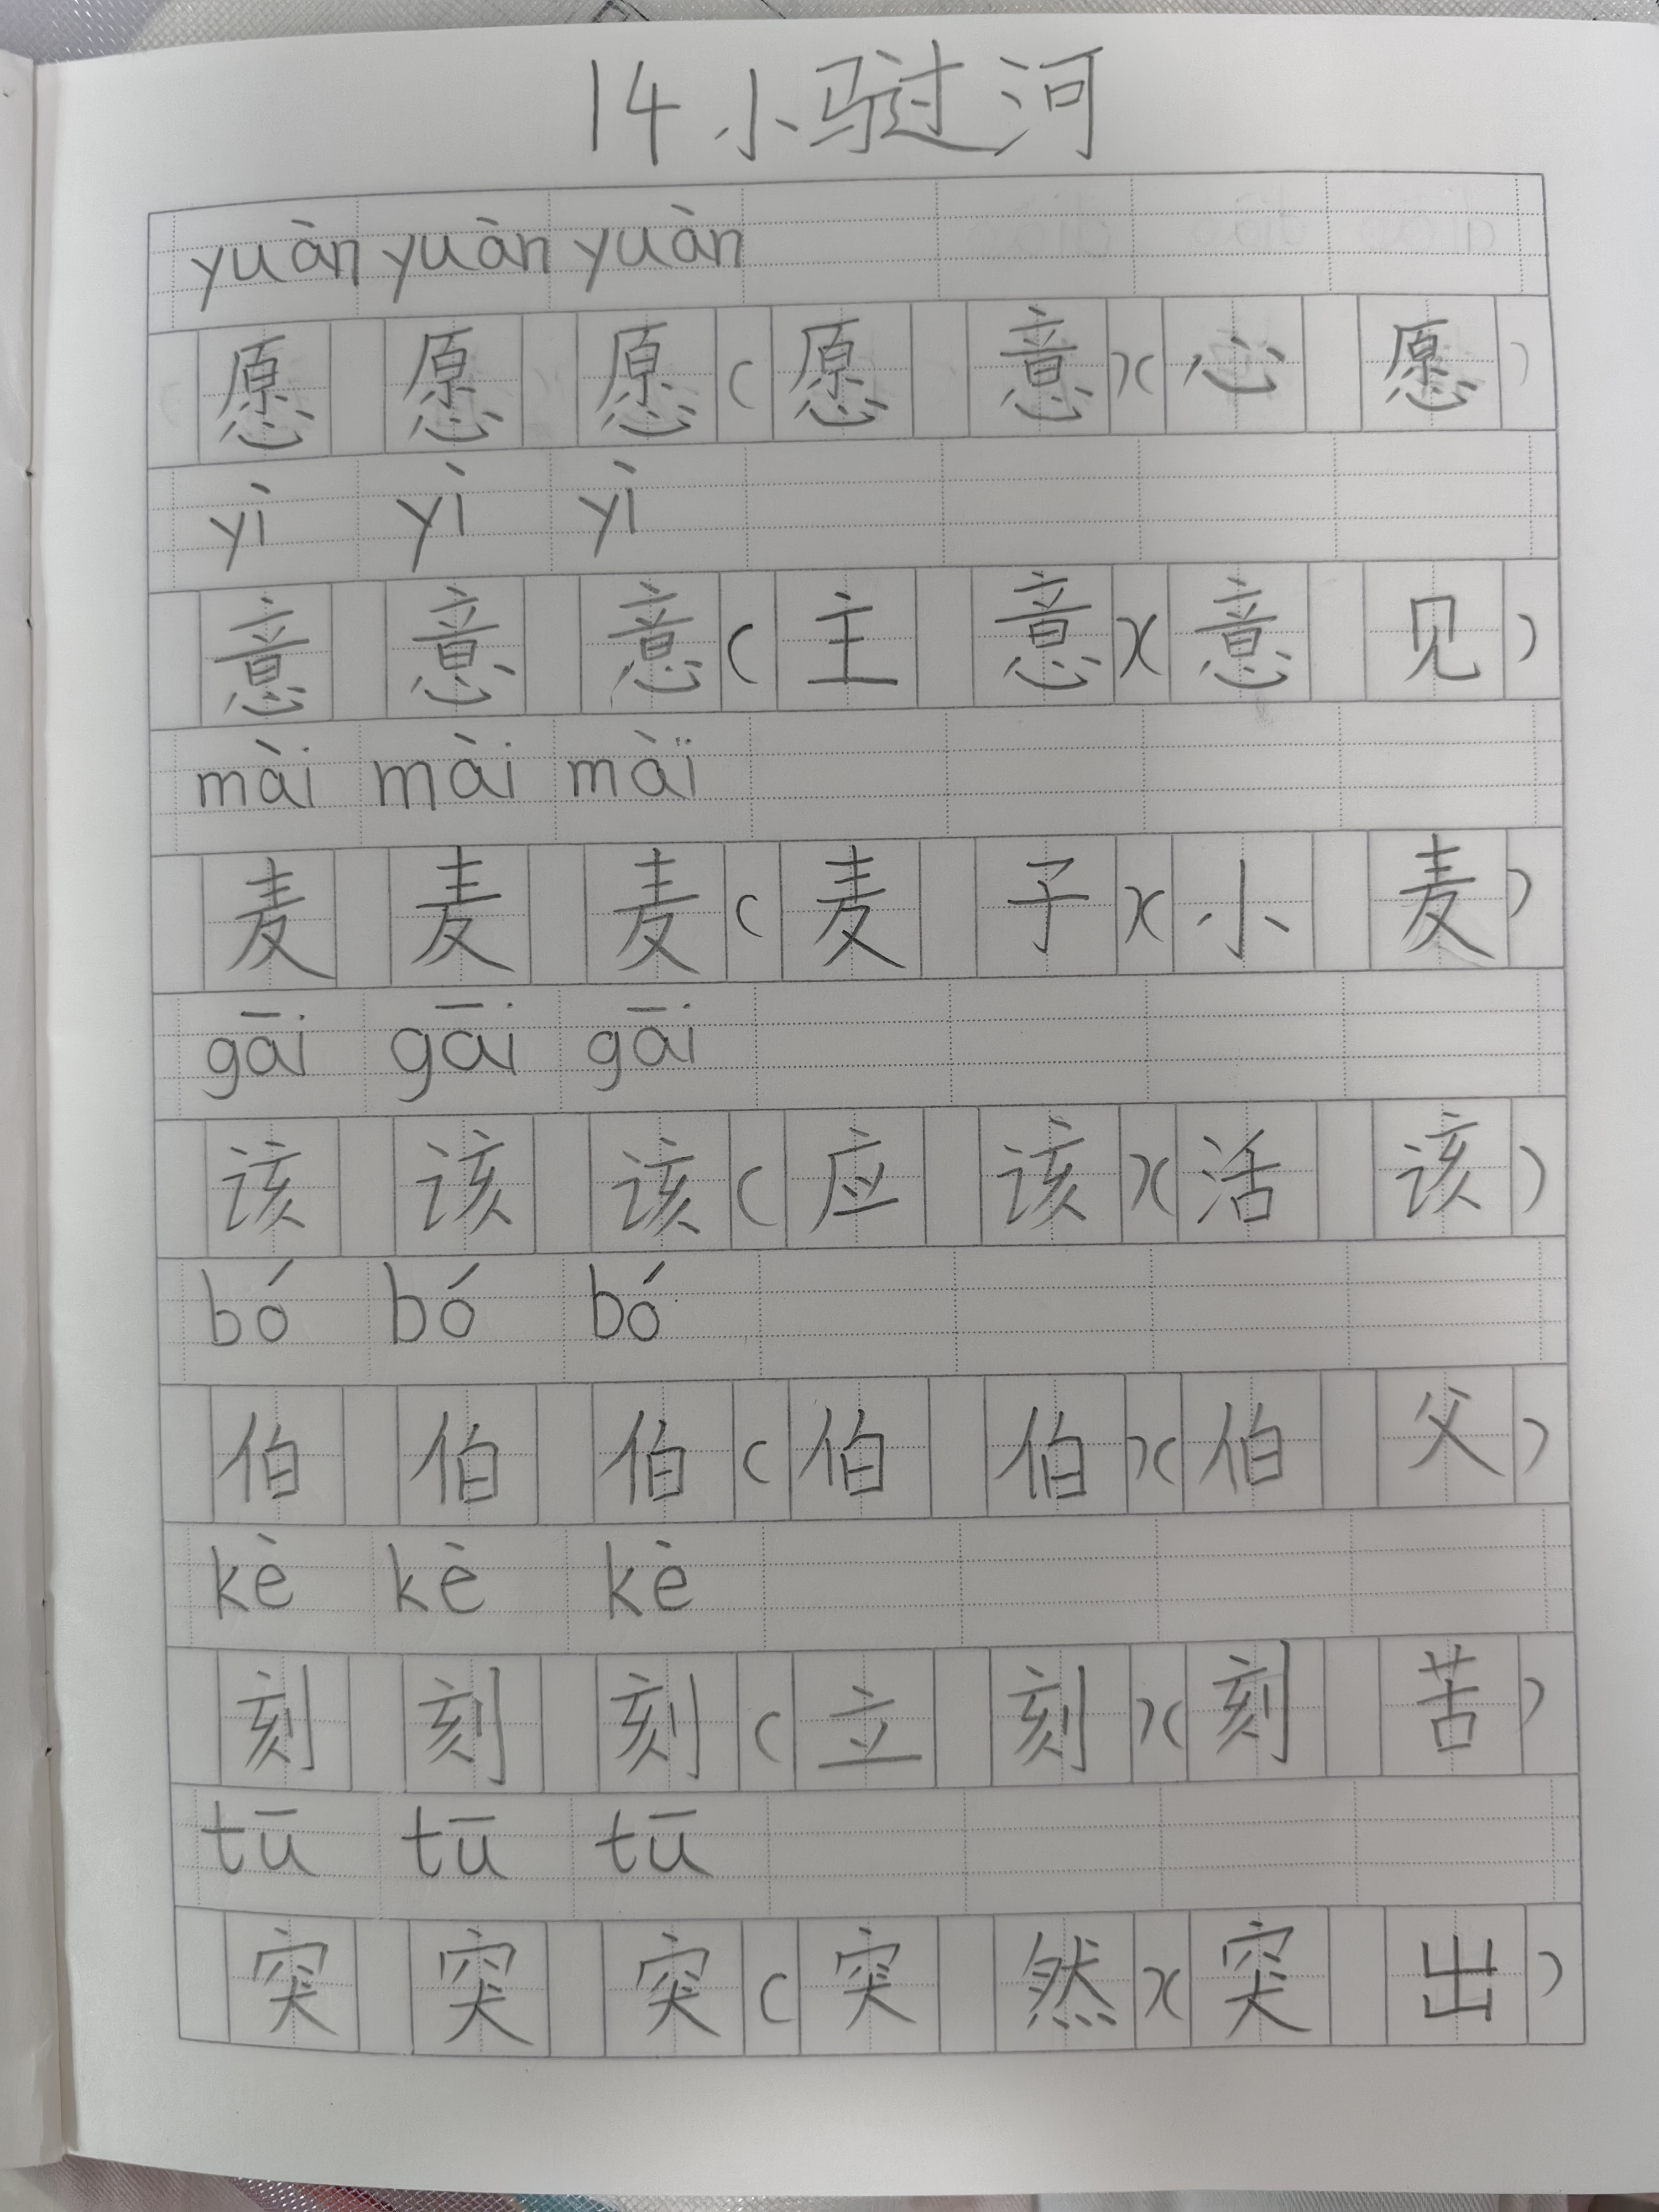 14 小马过河
yuàn yuàn yuàn
愿 愿 愿 (愿 意)(心 愿)
yì yì yì
意 意 意 (主 意)(意 见)
mài mài mài
麦 麦 麦 (麦 子)(小 麦)
gāi gāi gāi
该 该 该 (应 该)(活 该)
bó bó bó
伯 伯 伯 (伯 伯)(伯 父)
kè kè kè
刻 刻 刻 (立 刻)(刻 苦)
tū tū tū
突 突 突 (突 然)(突 出)